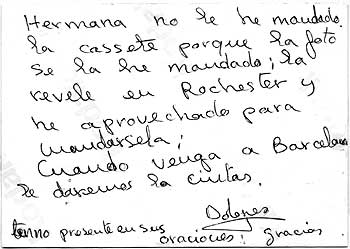 Hermana no le he mandado
la cassete porque la foto
se la he mandado; la
revele en Rochester y
he aprovechado para
mandarsela;
Cuando venga a Barcelona
le daremos la cintas.
Dolores
tenno presente en sus
oraciones; gracias